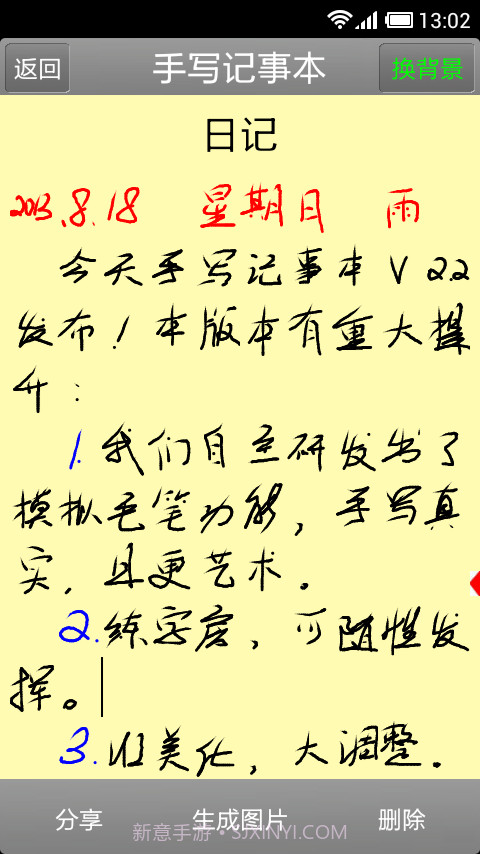 13:02
返回 手写记事本 换背景
日记
2013.8.18 星期日 雨
今天手写记事本V2.2
发布！本版本有重大提
升：
1.我们自主研发出了
模拟毛笔功能，手写真
实，且更艺术。
2.练字房，可随性发
挥。
3.UI美化，大调整。
分享 生成图片 删除
新意手游·SJXINYI.COM